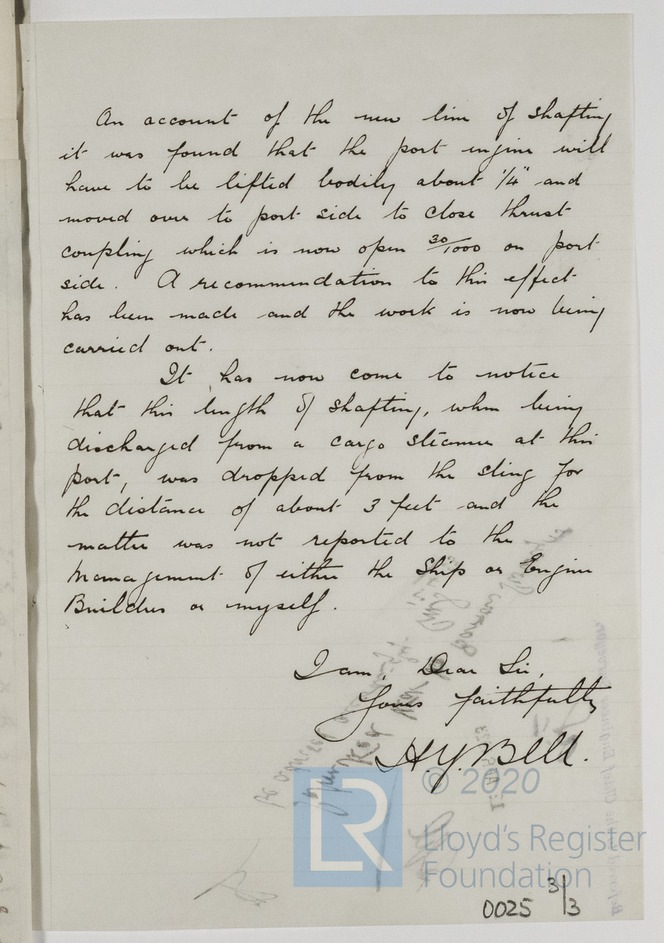 On account of the new line of shafting
it was found that the port engine will
have to be lifted bodily about 1/4" and
moved over to port side to close thrust
coupling which is now open 30/1000 on port
side. A recommendation to this effect
has been made and the work is now being
carried out.
It has now come to notice
that this length of shafting, when being
discharged from a cargo steamer at this
port, was dropped from the sling for
the distance of about 3 feet and the
matter was not reported to the
Management of either the Ship or Engine
Builders or myself.
I am, Dear Sir,
Yours faithfully
H.Y. Bell.
© 2020
LR
Lloyd's Register
Foundation
0025 3/3